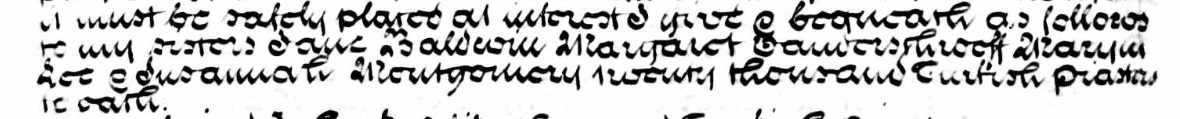 it must be safely placed at interest I give & bequeath as follows
to my sisters Jane Baldwin Margaret Maryiu
Lee & Susannah Montgomery twenty thousand Turkish Piasters
to each.